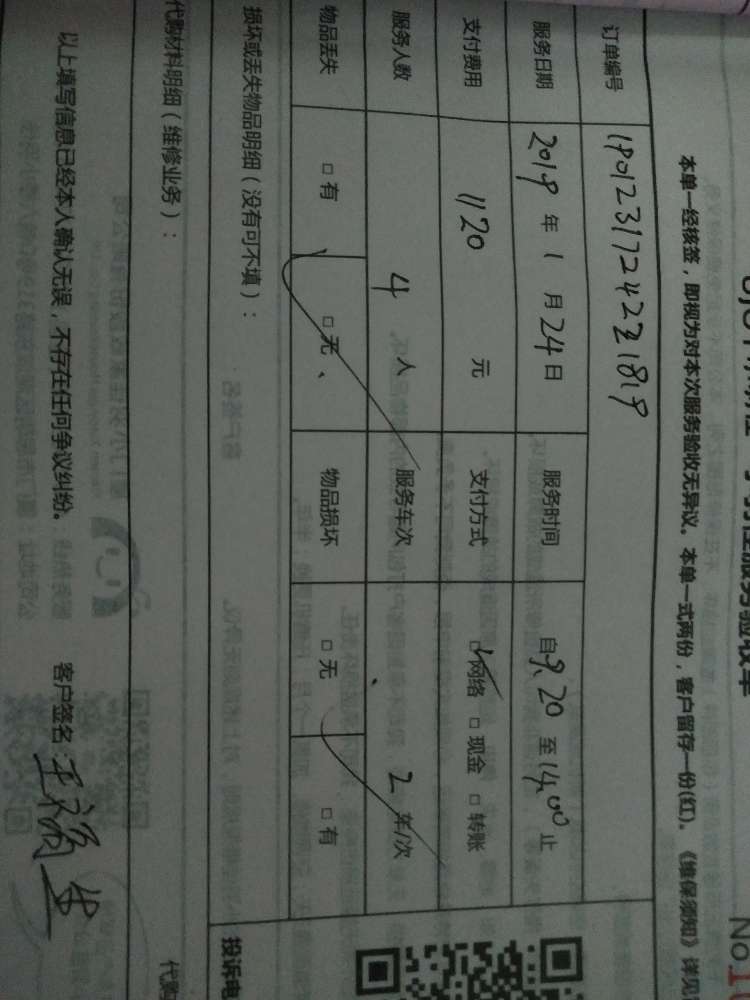 服务验收单
No.1
本单一经核签，即视为对本次服务验收无异议。本单一式两份，客户留存一份(红)。《维保须知》详见
订单编号 18012317242231819
服务日期 2018 年 1 月 24 日 服务时间 自 9.20 至 14.00 止
支付费用 1120 元 支付方式 □网络 □现金 □转账
服务人数 4 人 服务车次 2 车/次
物品丢失 □有 □无、 物品损坏 □无 □有
损坏或丢失物品明细（没有可不填）： 投诉电
代购材料明细（维修业务）： 代购
以上填写信息已经本人确认无误，不存在任何争议纠纷。 客户签名：